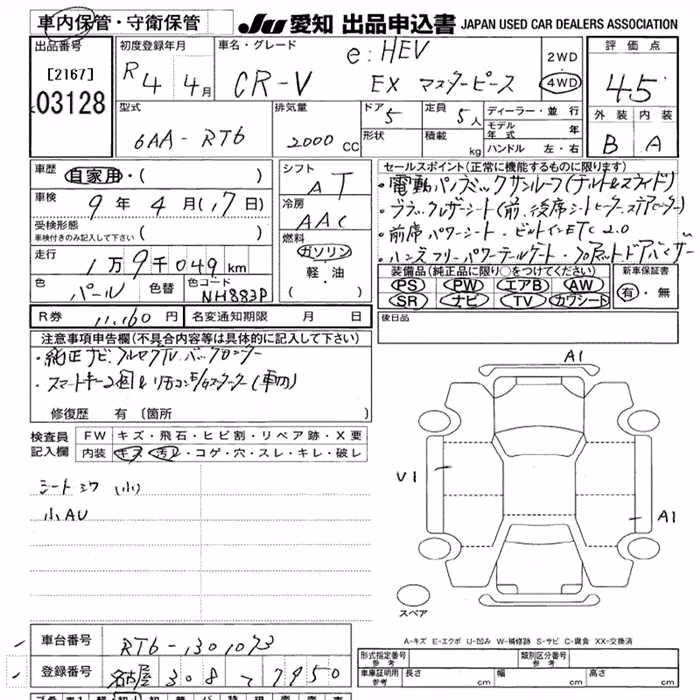 車内保管・守衛保管
JU 愛知 出品申込書 JAPAN USED CAR DEALERS ASSOCIATION
出品番号
[2167]
03128
初度登録年月
R 4 4月
車名・グレード
e:HEV
CR-V EX マスターピース
2WD
4WD
評価点
4.5
外装 内装
B A
型式
6AA-RT6
排気量
2000 CC
ドア 5
形状
定員 5人
積載 kg
ディーラー・並行
モデル年式 年
ハンドル 左・右
車歴 自家用・( )
車検 9年4月(17日)
受検形態
車検付きのみ記入して下さい ( )
走行
1万9千049km
色 パール 色替 色コード NH883P
シフト
AT
冷房
AAC
燃料
ガソリン
軽・油
( )
R券 11,160円 名変通知期限 月 日
セールスポイント(正常に機能するものに限ります)
・電動パノラミックサンルーフ(チルト&スライド)
・ブラックレザーシート(前、後席シートヒーター
・前席パワーシート・ビルトインETC2.0
・ハンズフリーパワーテールゲート・フロアマットドアバイザー
装備品(純正品に限り○をつけてください)
PS PW エアB AW
SR ナビ TV カワシート
新車保証書
有・無
後日品
注意事項申告欄(不具合内容等は具体的に記入して下さい)
・純正ナビ.フルセグTV.バックカメラー
・スマートキー2個&リモコンE/Gスターター(車内)
修復歴 有(箇所 )
検査員記入欄
FW キズ・飛石・ヒビ割・リペア跡・X要
内装 キズ・汚レ・コゲ・穴・スレ・キレ・破レ
シートシワ(小)
小AU
A1
V1
A1
スペア
A-キズ E-エクボ U-凹み W-補修跡 S-サビ C-腐食 XX-交換済
車台番号 RT6-1301073
登録番号 名古屋 308 て 7950
形式指定番号 参考
類別区分番号 参考
車庫証明用 参考 長さ cm 幅 cm 高さ cm